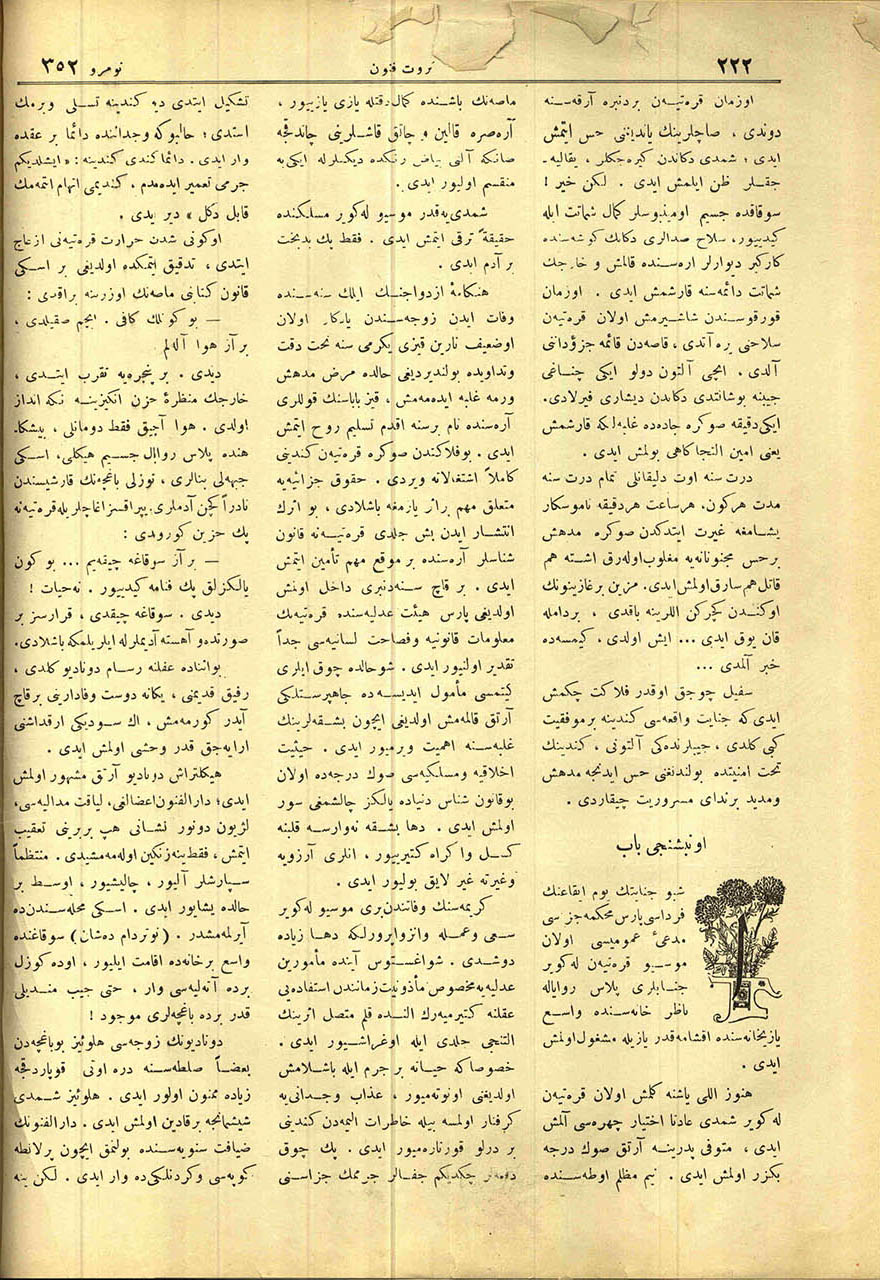 ٢٢٢
ثروت فنون
نومرو ٣٥٢
اوزمان قره‌تیه‌ن بردنبره آرقه‌سنه
دوندی ، صاچلرینك یاندیغنی حس ایتمش
ایدی ؛ شمدی دكاندن كیره‌جكلر ، یقالیه‌ـ
جقلر ظن ایلمش ایدی . لكن خیر !
سوقاقده جسیم اومنیبوسلر كمال شماتت ایله
كیدییور، سلاح صدالری دكانك كوشه‌سنده
كاركیر دیوارلر اره‌سنده قالمش و خارجك
شماتت دائمه‌سنه قارشمش ایدی . اوزمان
قورقوسندن شاشیرمش اولان قره‌تیه‌ن
سلاحنی یره آتدی ، قاصه‌دن قائمه جزؤداننی
آلدی . ایچی آلتون دولو ایكی چناغی
جیبنه بوشالتدی دكاندن دیشاری فیرلادی.
ایكی‌دقیقه صوكره جاده‌ده غلبه‌لكه قارشمش
یعنی امین التجاكاهی بولمش ایدی .
درت سنه اوت دلیقانلی تمام درت سنه
مدت هركون، هرساعت هردقیقه ناموسكار
یشامغه غیرت ایتدكدن صوكره مدهش
برحس مجنونانه‌یه مغلوب‌اوله‌رق اشته هم
قاتل‌هم سارق‌اولمش‌ایدی. مزین برغازینونك
اوكندن كچركن اللرینه باقدی ، بردامله
قان یوق ایدی ... ایش اولدی ، كیمسه‌ده
خبر آلمدی ...
سفیل چوجق اوقدر فلاكت چكمش
ایدی‌كه جنایت واقعه‌سی كندینه برموفقیت
كبی كلدی ، جیبلرنده‌كی آلتونی ، كندینك
تحت امنیتده بولندیغنی حس ایدنجه مدهش
ومدید برندای مسروریت چیقاردی .
اونبشنجی باب
شبو جنایتك یوم ایقاعنك
فرداسی پارس محكمه‌جزاسی
مدعئ عمومیسی اولان
موسیو قره‌تیه‌ن له‌كویر
جنابلری پلاس روایاله
ناظر خانه‌سنده واسع
یازیخانه‌سنده اقشامه‌قدر یازیله مشغول‌اولمش
ایدی .
هنوز اللی یاشنه كلمش اولان قره‌تیه‌ن
له كویر شمدی عادتا اختیار چهره‌سی آلمش
ایدی ، متوفی پدرینه آرتق صوك درجه
بكزر اولمش ایدی . نیم مظلم اوطه‌سنده
ماصه‌نك باشنده كمال‌دقتله یازی یازییور ،
آره‌صره قالین و چاتق قاشلرینی چاتدقجه
صانكه آلنی بیاض رنكده دیكلرله ایكی‌یه
منقسم اولیور ایدی .
شمدی‌یه‌قدر موسیو له‌كویر مسلكنده
حقیقةً ترقی ایتمش ایدی . فقط پك بدبخت
بر آدم ایدی .
هنكامهٔ ازدواجنك ایلك سنه‌سنده
وفات ایدن زوجه‌سندن یادكار اولان
اوضعیف نارین قیزی یكرمی سنه تحت دقت
وتداویده بولندیردیغی حالده مرض مدهش
ورمه غلبه ایده‌مه‌مش ، قیز باباسنك قوللری
آره‌سنده تام برسنه اقدم تسلیم روح ایتمش
ایدی . بوفلاكتدن صوكره قره‌تیه‌ن كندینی
كاملاً اشتغالاته ویردی . حقوق جزائیه‌یه
متعلق مهم براثر یازمغه باشلادی ، بو اثرك
انتشار ایدن بش جلدی قره‌تیه‌نه قانون
شناسلر آره‌سنده بر موقع مهم تأمین ایتمش
ایدی . بر قاچ سنه‌دنبری داخل اولمش
اولدیغی پارس هیئت عدلیه‌سنده قره‌تیه‌نك
معلومات قانونیه وفصاحت لسانیه‌سی جداً
تقدیر اولنیور ایدی . شو‌حالده چوق ایلری
كیتمسی مأمول ایدیسه‌ده جاهپرستلكی
آرتق قالمه‌مش اولدیغی ایچون بشقه‌لرینك
غلبه‌سنه اهمیت ویرمیور ایدی . حیثیت
اخلاقیه ومسلكیه‌سی صوك درجه‌ده اولان
بوقانون شناس دنیاده یالكز چالشمغی سور
اولمش ایدی . دها بشقه نه‌وارسه قلبنه
كسل واكراه كتیرییور ، انلری آرزویه
وغیرته غیر لایق بولیور ایدی .
كریمه‌سنك وفاتندن‌بری موسیو له‌كویر
سعی وعمله وانزوایرورلكه دها زیاده
دوشدی . شواغستوس آینده مأمورین
عدلیه‌یه‌مخصوص مأذونیت‌زمانندن استفاده‌یی
عقلنه كتیرمیه‌رك النده قلم متصل اثرینك
التنجی جلدی ایله اوغراشیور ایدی .
خصوصاكه حیاته بر جرم ایله باشلامش
اولدیغنی اونوته‌میور ، عذاب وجدانی‌یه
كرفتار اولمسه بیله خاطرات الیمه‌دن كندینی
بر درلو قورتاره‌میور ایدی . پك چوق
دفعه‌لر چكدیكم جفالر جرممك جزاسنی
تشكیل ایتدی دیه كندینه تسلی ویرمك
استدی ؛ حالبوكه وجداننده دائما بر عقده
وار ایدی . دائما كندی كندینه : « ایشلدیكم
جرمی تعمیر ایده‌مدم ، كندیمی اتهام ایتمه‌مك
قابل دكل » دیر ایدی .
اوكونی شدت حرارت قره‌تیه‌نی ازعاج
ایتدی ، تدقیق ایتمكده اولدیغی بر اسكی
قانون كتابنی ماصه‌نك اوزرینه براقدی :
— بو كونلك كافی . ایچم صقیلدی ،
بر آز هوا آله‌لم
دیدی . بر پنجره‌یه تقرب ایتدی ،
خارجك منظرهٔ حزن انكیزینه نكه انداز
اولدی . هوا آچیق فقط دومانلی ، پیشكاـ
هنده پلاس روایال جسیم هیكلی، اسكی
جبهه‌لی بنالری ، توزلی باغچه‌نك قارشیسندن
نادراً كچن آدملری. یپراقسز اغاچلریله قره‌تیه‌نه
پك حزین كوروندی :
— بر آز سوقاغه چیقه‌یم ... بو كون
یالكزلق پك فنامه كیدییور . نه‌حیات !
دیدی . سوقاغه چیقدی ، قرارسز بر
صورتده‌و آهسته آدیملرله ایلریلمكه باشلادی.
بواثناده عقلنه رسام دونادیو كلدی ،
رفیق قدیمنی ، یكانه دوست وفادارینی برقاچ
آیدر كورمه‌مش ، اك سودیكی ارقداشنی
ارایه‌جق قدر وحشی اولمش ایدی .
هیكلتراش دونادیو آرتق مشهور اولمش
ایدی؛ دارالفنون‌اعضالغی، لیاقت مدالیه‌سی،
لژیون دونور نشانی هپ بربرینی تعقیب
ایتمش ، فقط‌ینه زنكین اوله‌مه‌مشیدی . منتظماً
سپارشلر آلیور ، چالیشیور ، اوسط بر
حالده یشایور ایدی . اسكی محله‌سندن‌ده
آیرلمه‌مشدر . (نوتردام ده‌شان) سوقاغنده
واسع برخانه‌ده اقامت ایلیور ، اوده كوزل
برده آته‌لیه‌سی وار ، حتی جیب مندیلی
قدر برده باغچه‌لری موجود !
دونادیونك زوجه‌سی هلوئیز بوباغچه‌دن
بعضاً صلطه‌سنه دره اوتی قوپاردقجه
زیاده ممنون اولور ایدی . هلوئیز شمدی
شیشمانجه برقادین اولمش ایدی . دارالفنونك
ضیافت سنویه‌سنده بولنمق ایچون پرلانطه
كوپه‌سی وكردنلكی‌ده وار ایدی . لكن ینه